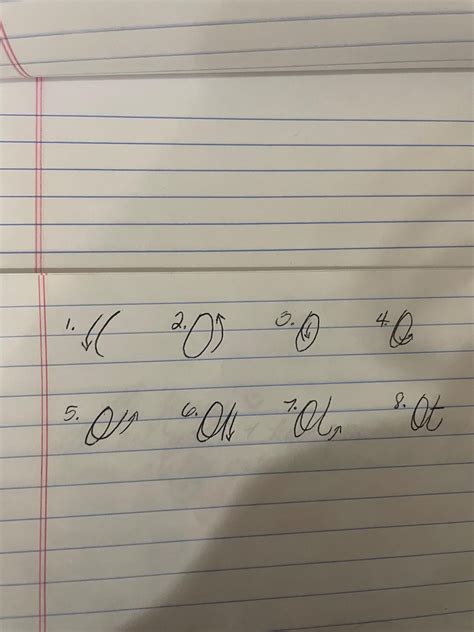 1. ( 2. O 3. O 4. O
5. O/ 6. Ol 7. Ol 8. Ot